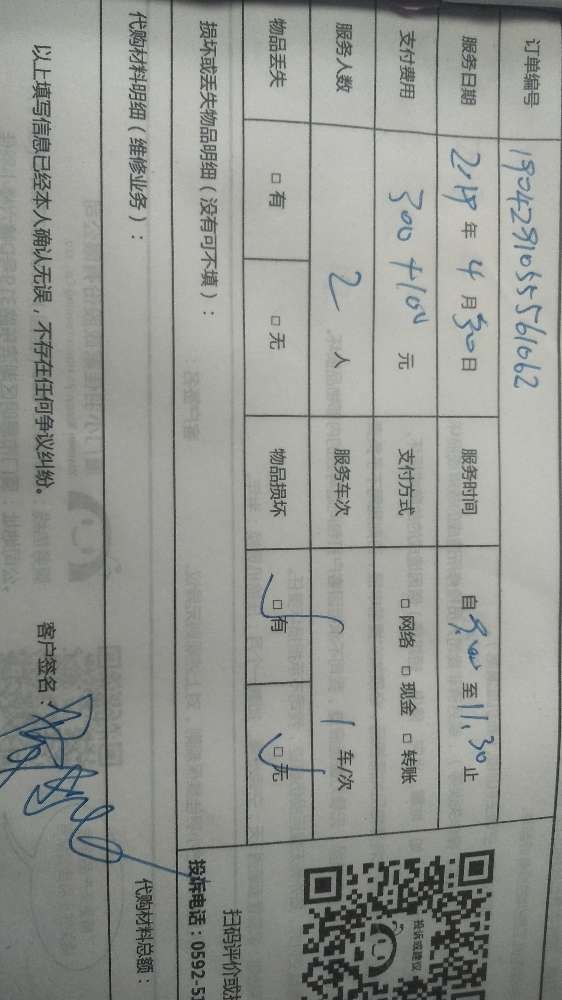 订单编号 190429105556 1062
服务日期 2019 年 4 月 30 日 服务时间 自 9.00 至 11.30 止
支付费用 300+100 元 支付方式 □ 网络 □ 现金 □ 转账
服务人数 2 人 服务车次 1 车/次
物品丢失 □ 有 □ 无 物品损坏 □ 有 □ 无
损坏或丢失物品明细(没有可不填):
代购材料明细(维修业务):
代购材料总额:
以上填写信息已经本人确认无误,不存在任何争议纠纷。 客户签名:
投诉或建议
扫码评价或
投诉电话:0592-5